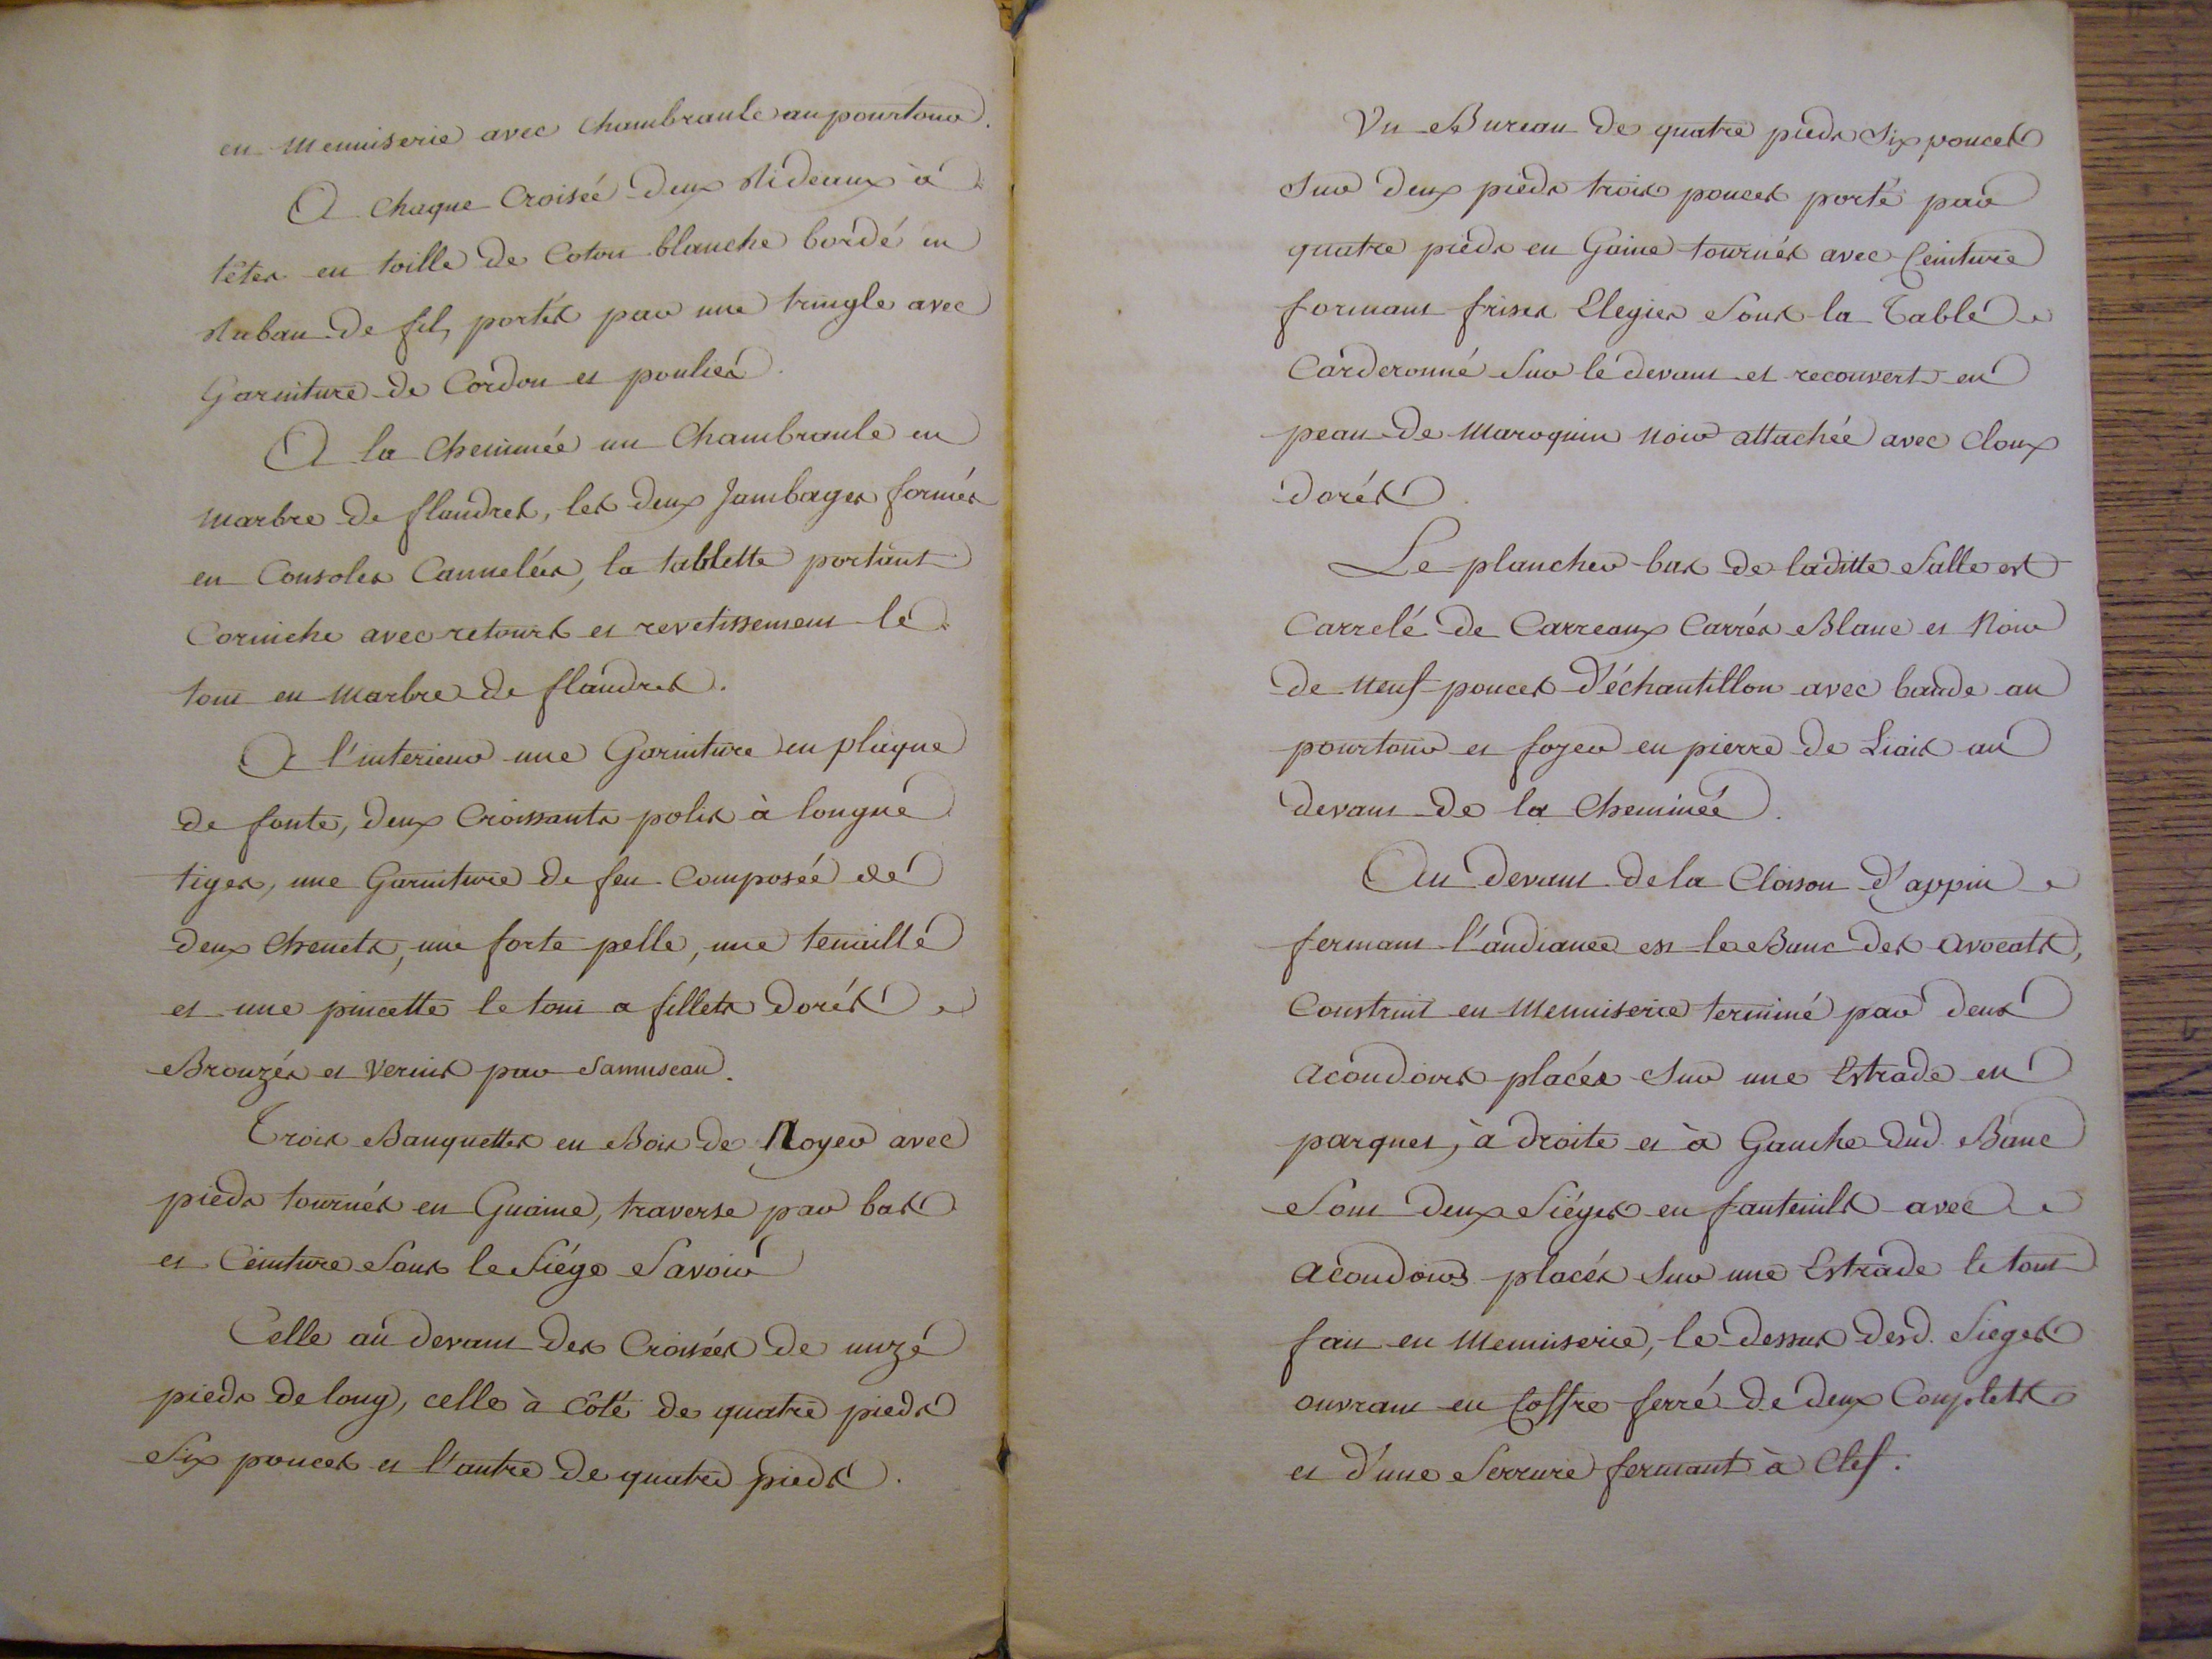 en Menuiserie avec Chambranle au pourtour.
A chaque Croisée deux Rideaux à
têtes en toille de Coton blanche bordé en
Ruban de fil, portés par une tringle avec
Garniture de Cordon et poulies.
A la Cheminée un Chambranle en
Marbre de flandres, les deux Jambages formés
en Consoles Cannelées, la tablette portant
Corniche avec retours et revetissement le
tout en Marbre de flandres.
A l'interieur une Garniture en plaque
de fonte, deux Croissants polis à longue
tiges, une Garniture de feu Composée de
deux Chenets, une forte pelle, une tenaille
et une pincette le tout a fillets dorés
Bronzés et Vernis par Samuseau.
Trois Banquettes en Bois de Noyer avec
pieds tournés en Guaine, traverse par bas
et Ceinture Sous le Siége Savoir
Celle au devant des Croisées de unze
pieds de long, celle à Côté de quatre pieds
Six pouces et l'autre de quatre pieds.
Un Bureau de quatre pieds Six pouces
Sur deux pieds trois pouces porté par
quatre pieds en Gaine tournés avec Ceinture
formant frises Elegies Sous la Table
Carderonné Sur le devant et recouvert en
peau de Maroquin Noir attachée avec Cloux
dorés.
Le plancher bas de laditte Salle est
Carrelé de Carreaux Carrés Blanc et Noir
de Neuf pouces d'échantillon avec bande au
pourtour et foyer en pierre de Liais au
devant de la Cheminée.
Au devant de la Cloison d'appui
fermant l'audiance est le Banc des Avocats,
Construit en Menuiserie terminé par deux
acoudoirs placés Sur une Estrade en
parquet, à droite et à Gauche dud. Banc
Sont deux Siéges en fauteuils avec
acoudoirs placés Sur une Estrade le tout
fait en Menuiserie, le dessus desd. Sieges
ouvrant en Coffre ferré de deux Couplets
et d'une Serrure fermant à Clef.